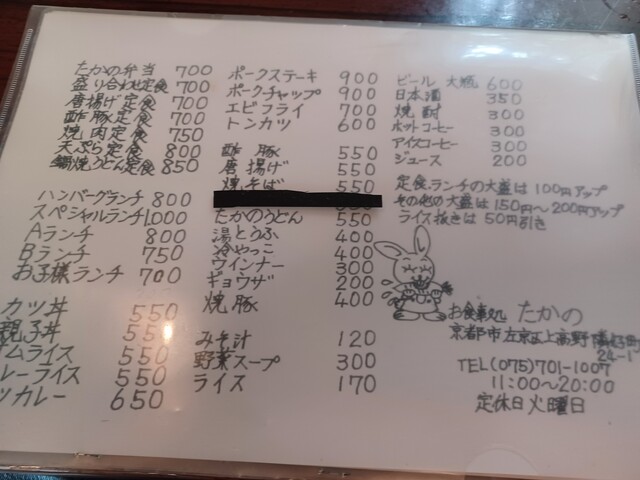 たかの弁当 700
盛り合わせ定食 700
唐揚げ定食 700
酢豚定食 700
焼肉定食 750
天ぷら定食 800
鍋焼うどん定食 850
ハンバーグランチ 800
スペシャルランチ 1,000
Aランチ 800
Bランチ 750
お子様ランチ 700
カツ丼 550
親子丼 550
ムライス 550
レーライス 550
ツカレー 650
ポークステーキ 900
ポークチャップ 900
エビフライ 700
トンカツ 600
酢豚 550
唐揚げ 550
焼そば 550
たかのうどん 550
湯とうふ 400
冷やっこ 400
ウインナー 300
ギョウザ 200
焼豚 400
みそ汁 120
野菜スープ 300
ライス 170
ビール 大瓶 600
日本酒 350
焼酎 300
ホットコーヒー 300
アイスコーヒー 300
ジュース 200
定食.ランチの大盛は100円アップ
その他の大盛は150円〜200円アップ
ライス抜きは50円引き
お食事処 たかの
京都市左京区上高野
24-1
TEL(075)701-1007
11:00〜20:00
定休日火曜日